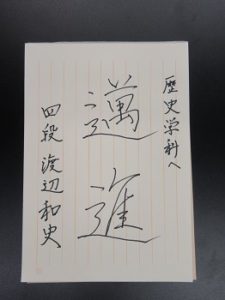 歴史学科へ
邁進
四段 渡辺和史